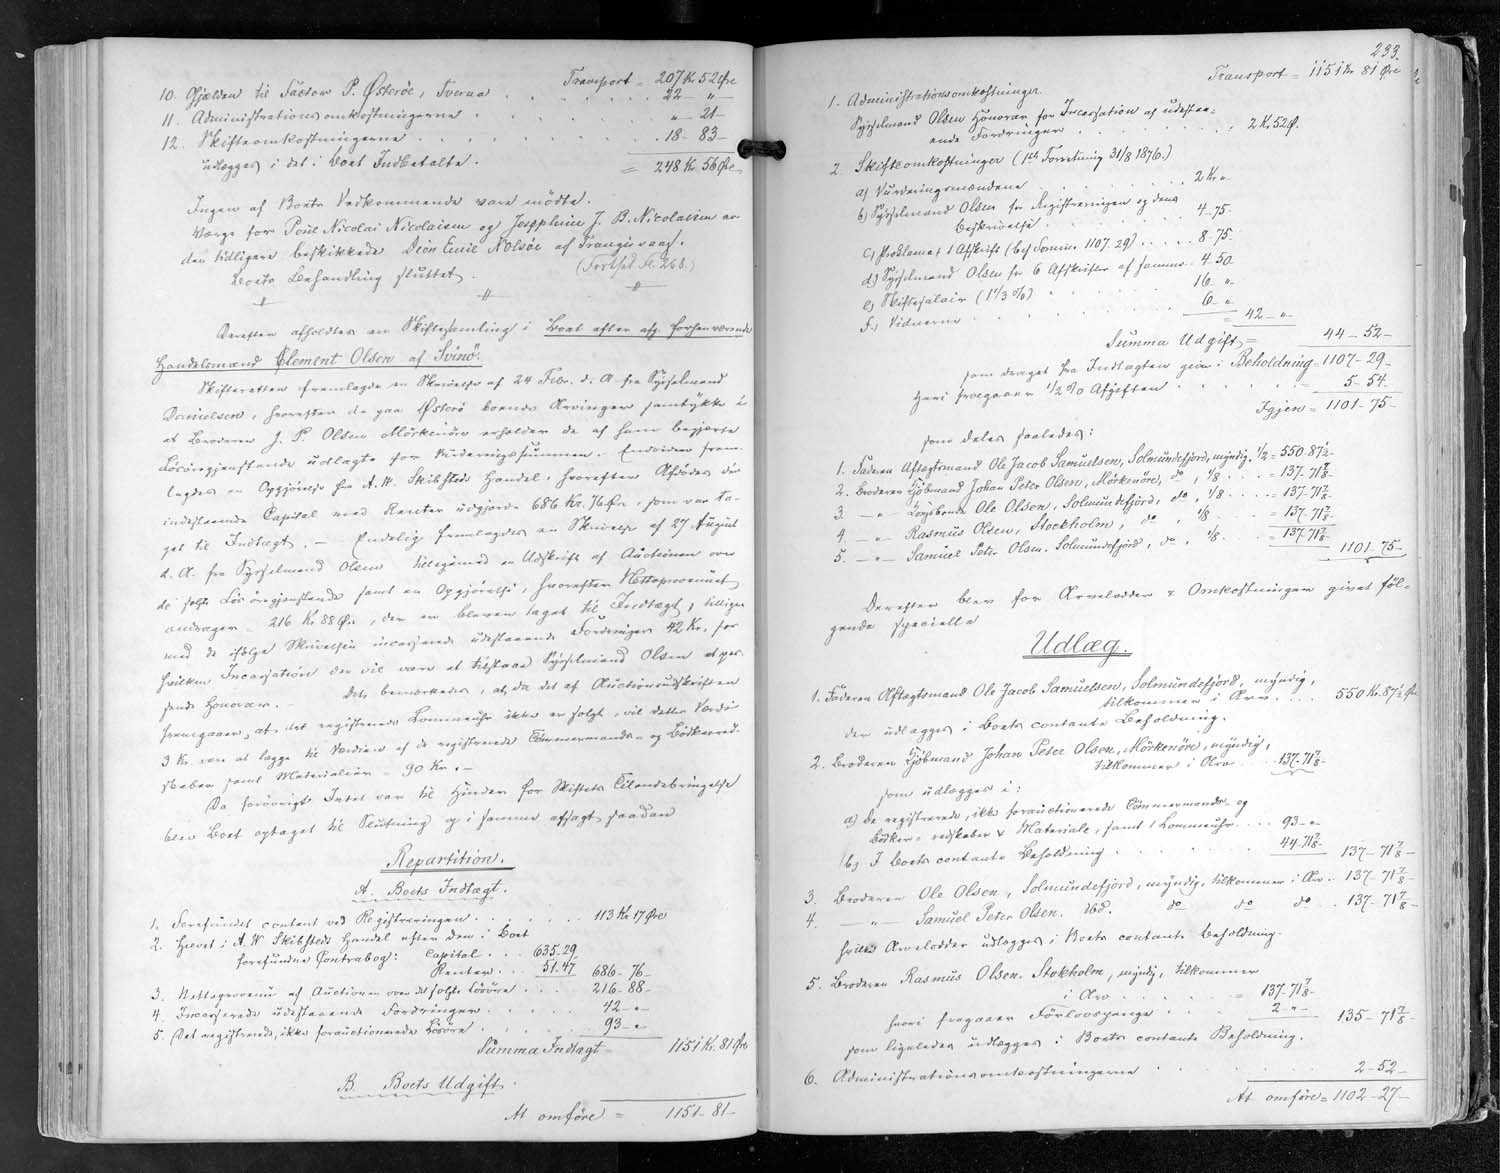 Transport = 207 Kr. 52 Øre
10. Gjælden til Factor P. Østerøe, Tveraa . . . . . . . 22 - " -
11. Administrationsomkostningerne . . . . . . . " - 21 -
12. Skifteomkostningerne . . . . . . . 18 - 83 -
udlægges i det i Boet Indbetalte. = 248 Kr. 56 Øre
Ingen af Boets Vedkommende vare mödte.
Værge for Poul Nicolai Nicolaisen og Josephine J. B. Nicolaisen er
den tidligere beskikkede Deon Emil Nolsöe af Trangisvaag.
Boets Behandling sluttet. (Fortsat Fl. 268.)
Derefter afholdtes en Skiftesamling i Boet efter afg. forhenværende
Handelsmand Clement Olsen af Svinö.
Skifteretten fremlagde en Skrivelse af 24 Febr. d. A. fra Sysselmand
Danielsen, hvorefter de paa Østerö boende Arvinger samtykke i
at Broderen J. P. Olsen Mörkenöre erholder de af ham begjærte
Lösöregjenstande udlagte for Vurderingssummen. - Endvidere frem-
lagdes en Opgjörelse fra A. W. Skibsteds Handel, hvorefter Afdödes der
indestaaende Capital med Renter udgjorde 686 Kr. 76 Øre, som var ta-
get til Indtægt. - Endelig fremlagdes en Skrivelse af 27 August
d. A. fra Sysselmand Olsen tilligemed en Udskrift af Auctionen over
de solgte Lösöregjenstande samt en Opgjörelse, hvorefter Nettoprovenuet
andrager 216 Kr. 88 Øre, der er bleven taget til Indtægt, tillige-
med de ifölge Skrivelsen incasserede udestaaende Fordringer 42 Kr., for
hvilken Incassation der vil være at tilstaae Sysselmand Olsen et pas-
sende Honorar. - Det bemærkedes, at, da det af Auctionsudskriften
fremgaaer, at det registrerede Lommeuhr ikke er solgt, vil dettes Værdi
3 Kr. være at lægge til Værdien af de registrerede Tömmermands- og Bödkerred-
skaber samt Materialier - 90 Kr. -
Da forövrigt Intet var til Hinder for Skiftets Tilendebringelse
blev Boet optaget til Slutning og i samme afsagt saadan
Repartition.
A. Boets Indtægt.
1. Forefundet contant ved Registreringen . . . . . . 113 Kr. 17 Øre
2. Hævet i A. W. Skibsteds Handel efter den i Boet
forefundne Contrabog: Capital . . . 635 - 29
Renter . . . 51 - 47 686 - 76 -
3. Nettoprovenu af Auctionen over det solgte Lösöre . . . 216 - 88 -
4. Incasserede udestaaende Fordringer . . . . . . 42 - " -
5. Det registrerede, ikke forauctionerede Lösöre . . . . 93 - " -
Summa Indtægt 1151 Kr. 81 Øre
B. Boets Udgift.
At omföre = 1151 - 81 -
233.
Transport = 1151 Kr. 81 Øre
1. Administrationsomkostninger.
Sysselmand Olsen Honorar for Incassation af udestaa-
ende Fordringer . . . . . . . . 2 Kr. 52 Ø.
2. Skifteomkostninger (1ste Forretning 31/8 1876.)
a) Vurderingsmændene . . . . . . . 2 Kr. "
b) Sysselmand Olsen for Registreringen og dens
Beskrivelse . . . . . . 4 - 75 -
c) Proklama & 1 Afskrift (beh. Somme 1107. 29) . . . . . 8 - 75 -
d) Sysselmand Olsen for 6 Afskrifter af samme . . 4 - 50 -
e) Skiftesalair (1 1/3 %) . . . . . . . 16 - " -
f.) Vidnerne . . . . . . . 6 - " - = 42 - " -
Summa Udgift = 44 - 52 -
som draget fra Indtægten giver i Beholdning = 1107 - 29 -
Heri fragaaer 1/2 % Afgiften . . . . . = 5 - 54 -
Igjen = 1101 - 75 -
som deles saaledes:
1. Faderen Aftægtsmand Ole Jacob Samuelsen, Solmundefjord, myndig, 1/2 = 550 - 87 1/2 -
2. Broderen Kjöbmand Johan Peter Olsen, Mörkenöre, do, 1/8 . . . = 137 - 71 7/8 -
3. - " - Kongsbonde Ole Olsen, Solmundefjord, do, 1/8 . . . = 137 - 71 7/8 -
4. - " - Rasmus Olsen, Stockholm, do, 1/8 . . . = 137 - 71 7/8 -
5. - " - Samuel Peter Olsen, Solmundefjord, do, 1/8 . . . = 137 - 71 7/8 -
1101 - 75 -
Derefter blev for Arvelodder & Omkostninger givet föl-
gende specielle
Udlæg.
1. Faderen Aftægtsmand Ole Jacob Samuelsen, Solmundefjord, myndig,
tilkommer i Arv . . . 550 Kr. 87 1/2 Øre
der udlægges i Boets contante Beholdning.
2. Broderen Kjöbmand Johan Peter Olsen, Mörkenöre, myndig,
tilkommer i Arv . . . 137 - 71 7/8 -
som udlægges i:
a) De registrerede, ikke forauctionerede Tömmermands- og
Bödker-redskaber & Materiale, samt 1 Lommeuhr . . . 93 - " -
b) I Boets contante Beholdning . . . . . . . 44 - 71 7/8 - 137 - 71 7/8 -
3. Broderen Ole Olsen, Solmundefjord, myndig, tilkommer i Arv . . 137 - 71 7/8 -
4. - " - Samuel Peter Olsen. Ibd. do do do . . 137 - 71 7/8 -
hvilke Arvelodder udlægges i Boets contante Beholdning.
5. Broderen Rasmus Olsen, Stokholm, myndig, tilkommer
i Arv . . . . . . = 137 - 71 7/8 -
hvori fragaaer Förlovspenge . . . . 2 - " - 135 - 71 7/8 -
som ligeledes udlægges i Boets contante Beholdning.
6. Administrationsomkostningerne . . . . . . . 2 - 52 -
At omföre = 1102 - 27 -